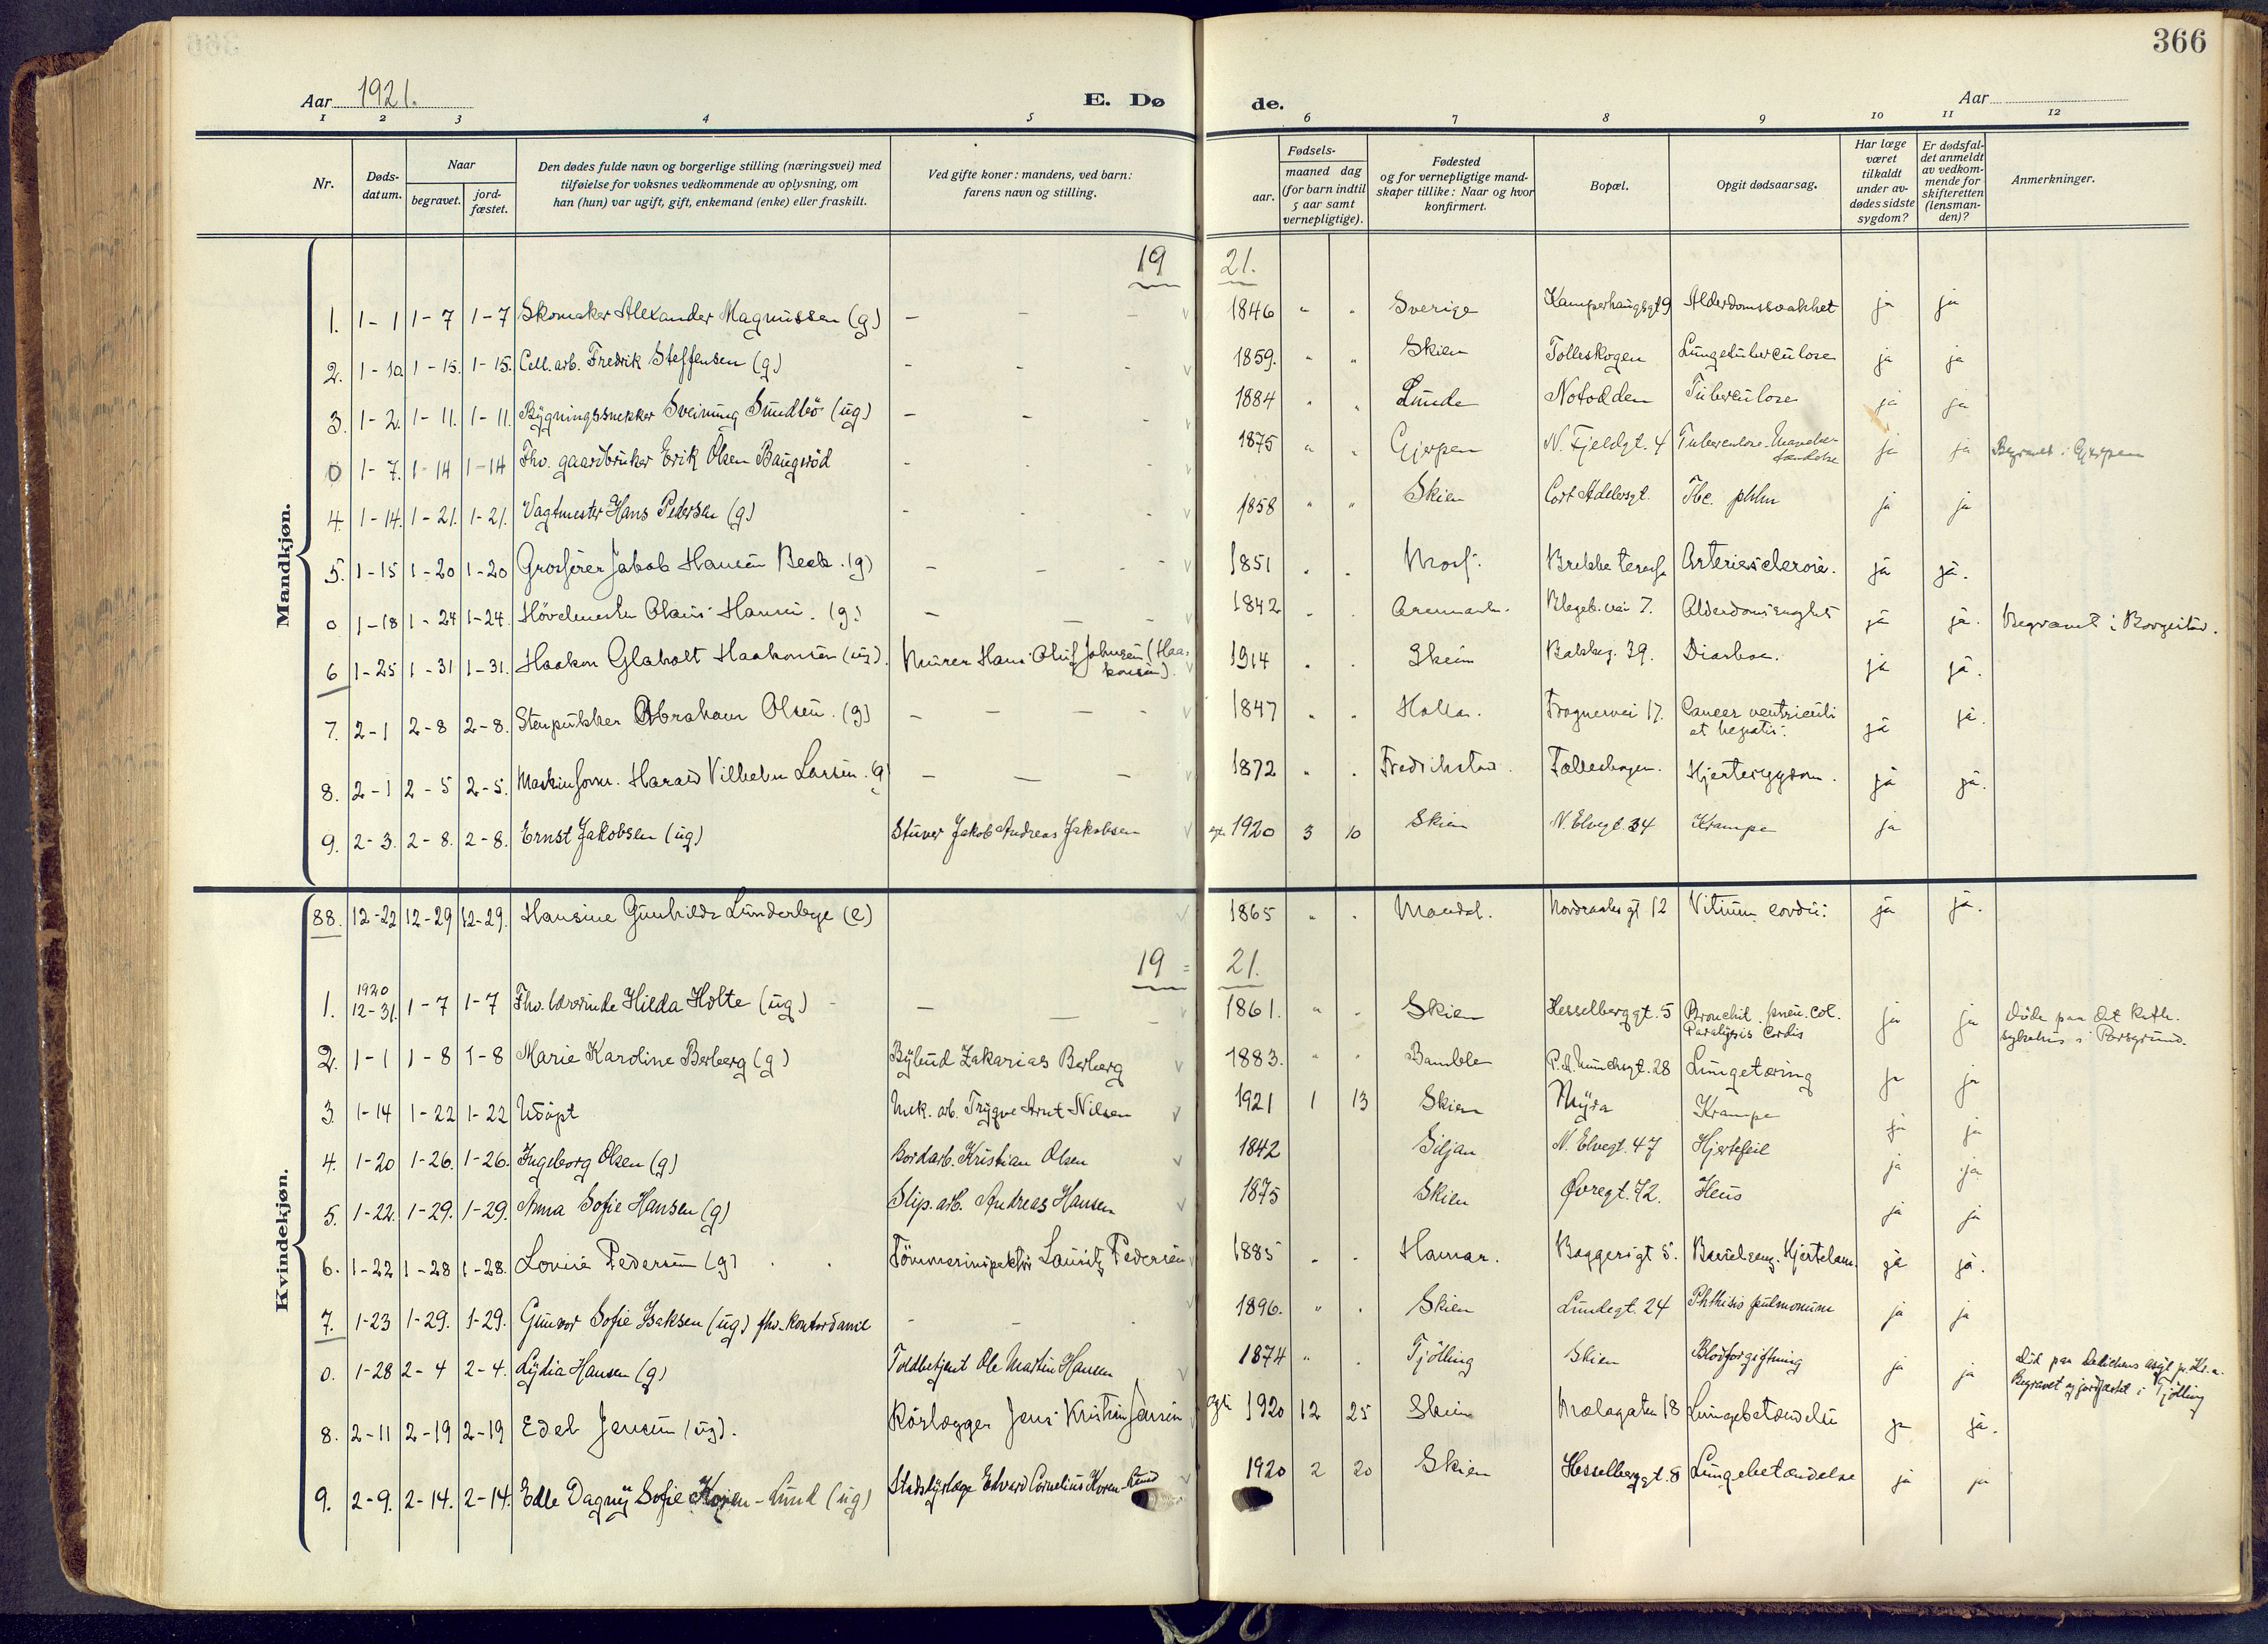 366
Aar 1921.
E. Dø
de.
Aar
1 2 3 4 5 6 7 8 9 10 11 12
Nr.
Døds-
datum.
Naar
begravet.
jord-
fæstet.
Den dødes fulde navn og borgerlige stilling (næringsvei) med
tilføielse for voksnes vedkommende av oplysning, om
han (hun) var ugift, gift, enkemand (enke) eller fraskilt.
Ved gifte koner: mandens, ved barn:
farens navn og stilling.
Fødsels-
aar.
maaned dag
(for barn indtil
5 aar samt
vernepligtige).
Fødested
og for vernepligtige mand-
skaper tillike: Naar og hvor
konfirmert.
Bopæl.
Opgit dødsaarsag.
Har læge
været
tilkaldt
under av-
dødes sidste
sygdom?
Er dødsfal-
det anmeldt
av vedkom-
mende for
skifteretten
(lensman-
den)?
Anmerkninger.
Mandkjøn.
19 21.
1. 1-1 1-7 1-7 Skomaker Alexander Magnussen (g) — — — 1846 " " Sverige Kamperhaugsgt 9 Alderdomssvakhet ja ja
2. 1-10 1-15. 1-15. Cell. arb. Fredrik Steffensen (g) - - - 1859. " " Skien Tolleskogen Lungetuberculose ja ja
3. 1-2. 1-11. 1-11. Bygningssnekker Sveinung Sundbö (ug) - - - 1884 " " Lunde Notodden Tuberculose ja ja
0 1-7. 1-14 1-14 Fhv. gaardbruker Erik Olsen Baugsröd - - - 1875 " " Gjerpen N. Fjeldgt. 4 Tuberculose ja ja Begravet i Gjerpen
4. 1-14. 1-21. 1-21. Vagtmester Hans Pedersen (g) - - - 1858 " " Skien Cort Adelersgt. Tbc. ja ja
5. 1-15 1-20 1-20 Grosserer Jakob Hansen Beck. (g) — — - 1851 " " Moss. Brekke terasse Arteriesclerose. ja ja.
0 1-18 1-24 1-24. Hövelmester Olaus Hansen. (g) — — - 1842 " " Aremark. Blegeb.vei 7. ja ja. Begravet i Borgestad.
6 1-25 1-31 1-31. Haakon Glaholt Haakonsen (ug). Murer Hans Oluf Johnsen (Haa-
konsen). 1914 " " Skien Bakkeg. 39. Diarhoe. ja ja.
7. 2-1 2-8 2-8. Stenpukker Abraham Olsen. (g) — — — - 1847 " " Holla. Frognervei 17. Cancer ventriculi
et hepatis. ja ja.
8. 2-1 2-5 2-5. Maskinform. Harald Vilhelm Larsen. (g) — — — 1872 " " Fredrikstad. Følleskogen. Hjertesygdom. ja ja.
9. 2-3. 2-8. 2-8. Ernst Jakobsen (ug) Stuver Jakob Andreas Jakobsen 1920 3 10 Skien N. Elvegt. 34 Krampe ja
Kvindekjøn.
88. 12-22 12-29 12-29. Hansine Gunhilde Lunderbye (e) 1865 " " Mandal. Nordraaks gt 12 Vitium cordis. ja ja.
19 = 21.
1. 1920
12-31. 1-7 1-7 Fhv. lærerinde Hilda Holte (ug) - — — - 1861. " " Skien Hesselberggt. 5 Bronchit. pneu. col.
Paralysis Cordis ja ja Döde paa det kath.
sykehus i Porsgrund.
2. 1-1 1-8 1-8 Marie Karoline Berberg (g) Bybud Zakarias Berberg 1883. " " Bamble P. A. Munchsgt. 28 Lungetæring ja ja
3. 1-14 1-22 1-22 Udöpt Mek. arb. Trygve Arnt Nilsen 1921 1 13 Skien Myra Krampe ja ja
4. 1-20 1-26. 1-26. Ingeborg Olsen (g) Bordarb. Kristian Olsen 1842 Siljan N. Elvegt. 47 Hjertefeil ja ja
5. 1-22. 1-29. 1-29. Anna Sofie Hansen (g) Slip. arb. Andreas Hansen 1875 Skien Øvregt. 42. Ileus ja ja
6. 1-22 1-28 1-28. Lovise Pedersen (g) Tömmerinspektör Lauritz Pedersen 1885 " " Hamar. Baggersgt 5. Barselseng. Hjertelam. ja ja.
7. 1-23 1-29. 1-29. Gunvor Sofie Isaksen (ug) fhv. kontordame - - - 1896. " " Skien Lundegt. 24 Phthisis pulmonum ja ja
0. 1-28 2-4 2-4. Lydia Hansen (g) Toldbetjent Ole Martin Hansen 1874 " . Tjölling Skien Blodforgiftning ja ja Död paa Dedichens asyl pr. Kr.a.
Begravet og jordfæstet i Tjölling
8. 2-11 2-19 2-19 Edel Jensen (ug). Rörlægger Jens Kristian Jensen 1920 12 25 Skien Mælagaten 18 Lungebetændelse ja ja.
9. 2-9. 2-14. 2-14. Edle Dagny Sofie Koren-Lund (ug) Stadsdyrlæge Edvard Cornelius Koren-Lund 1920 2 20 Skien Hesselberggt. 8 Lungebetændelse ja ja